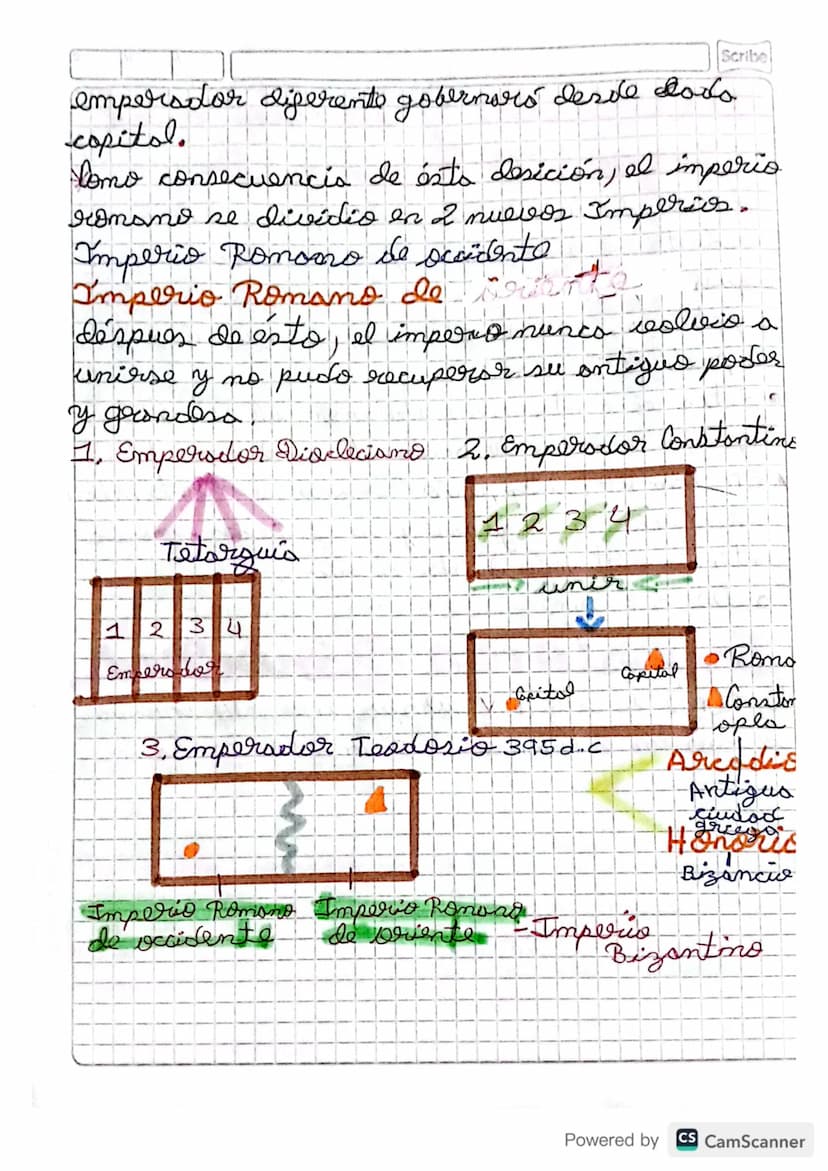 Scribe
emperador diferente gobernará desde cada
capital.
Como consecuencia de ésta desición, el imperio
romano se dividio en 2 nuevos Imperios.
Imperio Romano de occidente
Imperio Romano de oriente
déspues de ésto, el imperio nunca volvio a
unirse y no pudo recuperar su antiguo poder
y grandesa.
1. Emperador Diocleciano
2. Emperador Constantino
Tetarquia
1 2 3 4
Emperador
1 2 3 4
unir
Capital
Capital
Roma
Constan
opla
3. Emperador Teodosio 395 d.c
Arcadio
Antigua
ciudad
griega
Honorio
Bizáncio
Imperio Romano
de occidente
Imperio Romano
de oriente
- Imperio
Bizantino
Powered by CS CamScanner